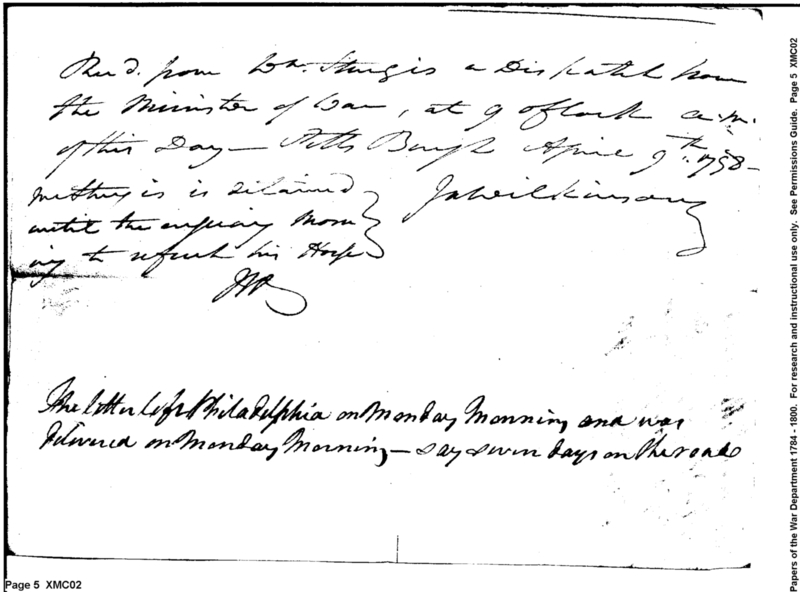 Rec'd. from Wm. Sturgis a Dispatch from
the Minister of War, at 9 oClock a.m.
of this Day — Pitts Burgh April 9th. 1798 —
Mr Sturgis is detained
until the ensuing Morn
ing to refresh his Horse
Ja Wilkinson
JW
The letter left Philadelphia on Monday Morning and was
delivered on Monday Morning — say seven days on the road
Page 5 XMC02
Papers of the War Department 1784 - 1800. For research and instructional use only. See Permissions Guide. Page 5 XMC02